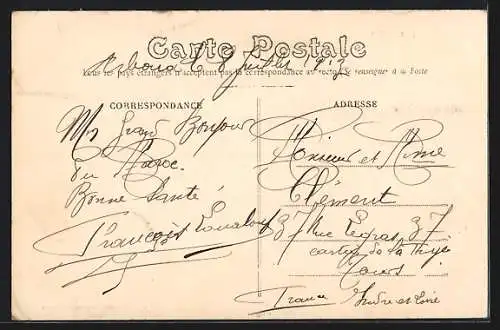 Carte Postale
Juillet 1913
Tous les pays étrangers n'acceptent pas la correspondance au recto (Se renseigner à la Poste
CORRESPONDANCE
ADRESSE
Mon Grand Bonjour
du Maroc.
Bonne Santé
François
Monsieur et Mme
Clément
37 Rue 37
de la
Tours
France Indre et Loire